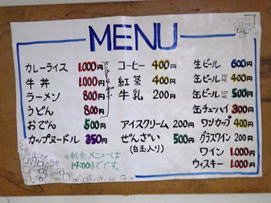 MENU
カレーライス 1.000円
牛丼 1.000円
ラーメン 800円
うどん 800円
おでん 500円
カップヌードル 350円
※軽食メニューは
14:00までです。
コーヒー 400円
紅茶 400円
牛乳 200円
アイスクリーム 200円
ぜんざい 500円
(白玉入り)
生ビール 600円
缶ビール 400円
缶ビール 500円
缶チューハイ 300円
ワンカップ 400円
グラスワイン 200円
ワイン 1.000円
ウィスキー 1.000円